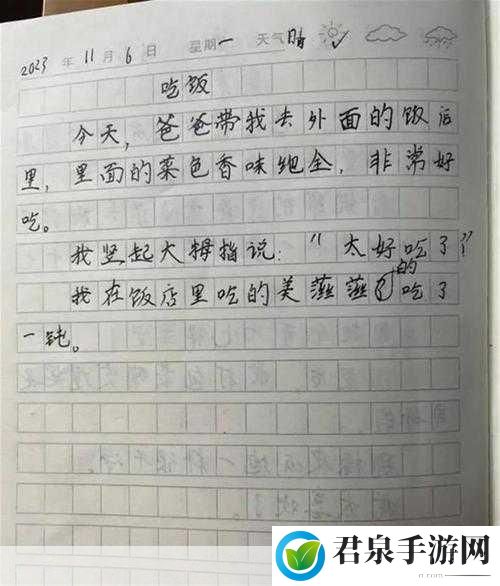 2023 年 11 月 6 日 星期一 天气晴
吃饭
今天,爸爸带我去外面的饭店
里,里面的菜色香味绝全,非常好
吃。
我竖起大拇指说:“太好吃了”
我在饭店里吃的美燕燕的吃了
一钝。
君泉手游网